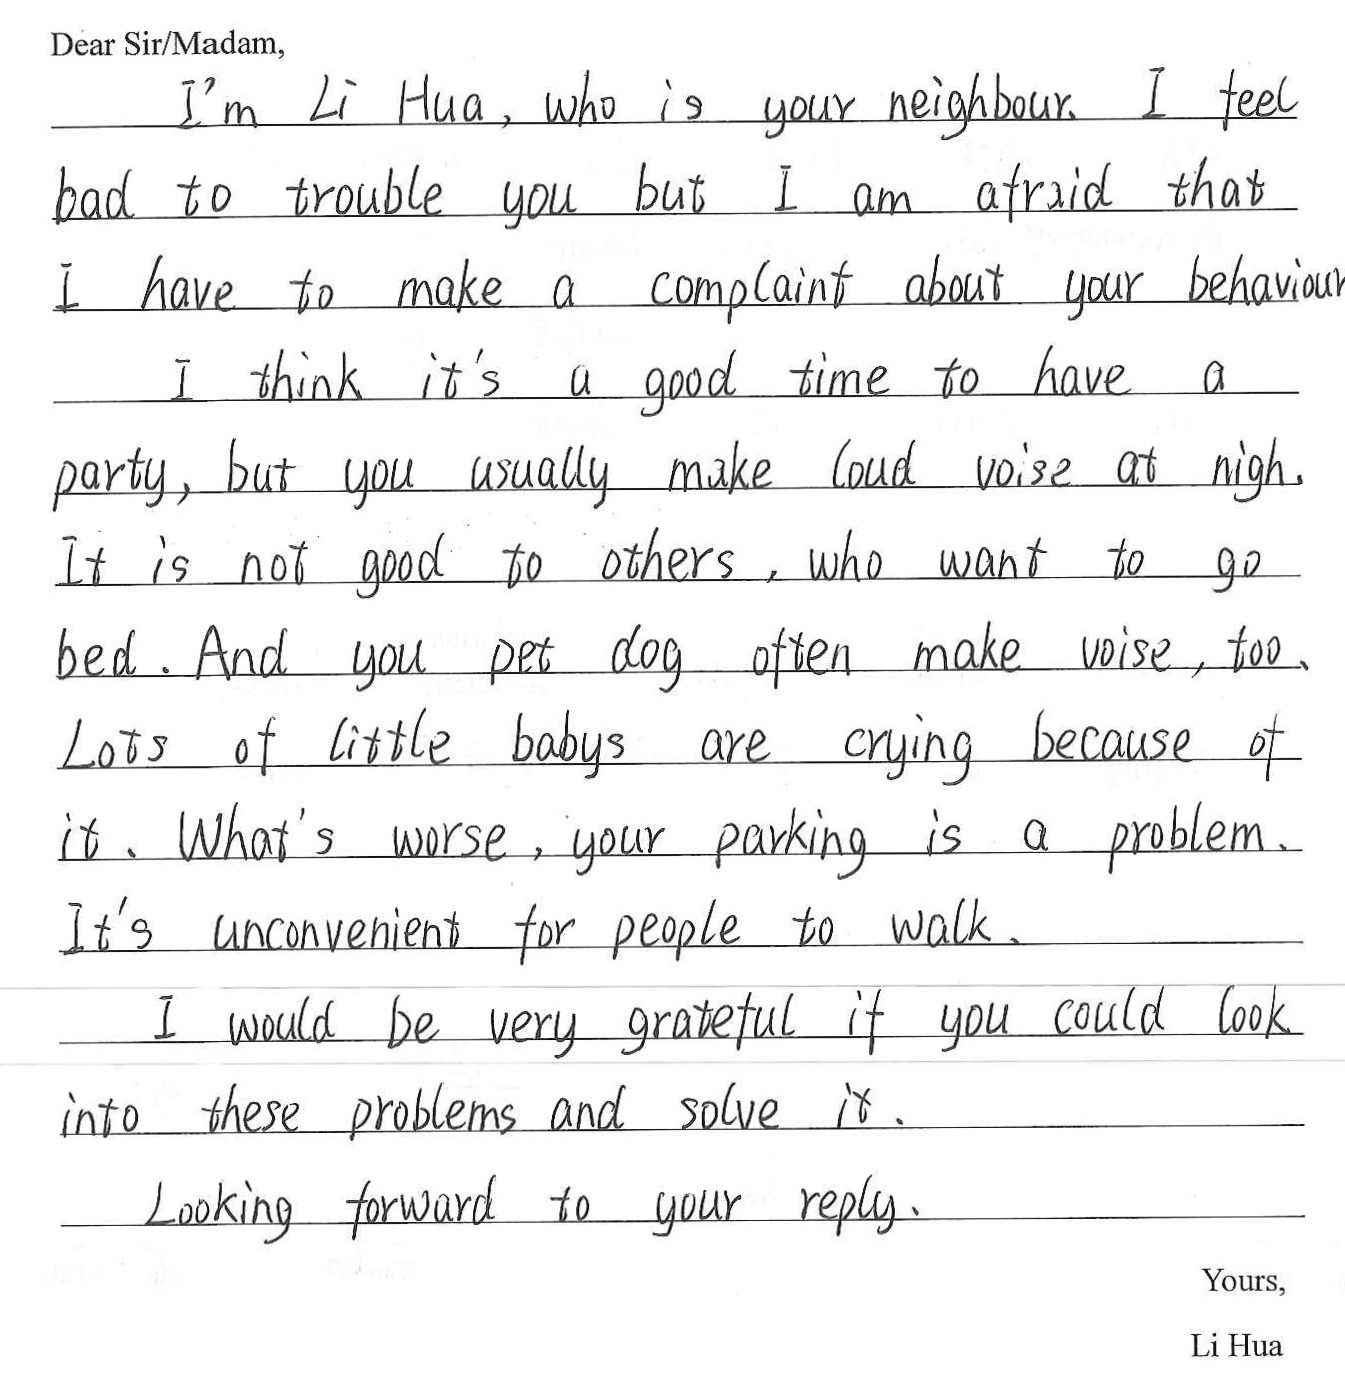 Dear Sir/Madam,
I'm Li Hua, who is your neighbour. I feel
bad to trouble you but I am afraid that
I have to make a complaint about your behaviour
I think it's a good time to have a
party, but you usually make loud voise at nigh.
It is not good to others, who want to go
bed. And you pet dog often make voise, too.
Lots of little babys are crying because of
it. What's worse, your parking is a problem.
It's unconvenient for people to walk.
I would be very grateful if you could look
into these problems and solve it.
Looking forward to your reply.
Yours,
Li Hua